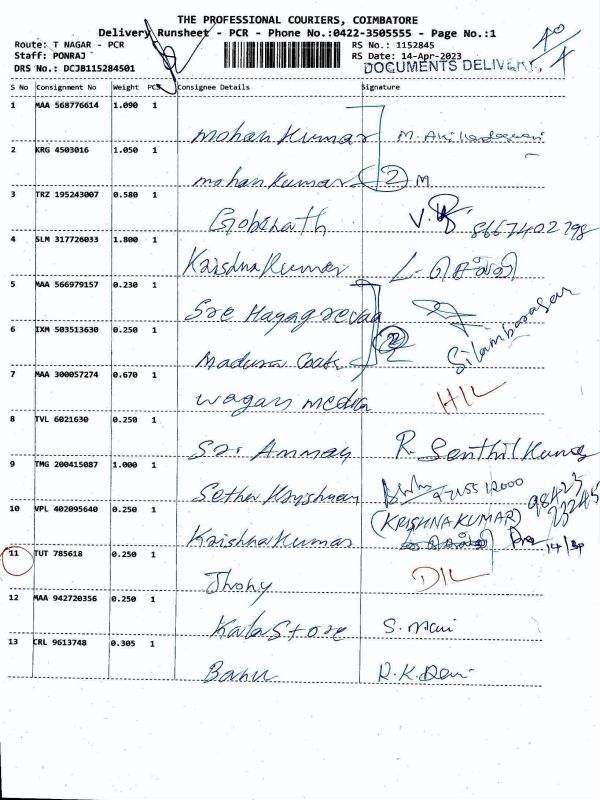 THE PROFESSIONAL COURIERS, COIMBATORE
Delivery Runsheet - PCR - Phone No.:0422-3505555 - Page No.:1
Route: T NAGAR - PCR RS No.: 1152845
Staff: PONRAJ RS Date: 14-Apr-2023
DRS No.: DCJB115284501 DOCUMENTS DELIVERY
S No Consignment No Weight PCS Consignee Details Signature
1 MAA 568776614 1.090 1
mohan Kumar M.
2 KRG 4503016 1.050 1
mohan Kumar 2 M
3 TRZ 195243007 0.580 1
Gobinath V. 8667402798
4 SLM 317726033 1.800 1
Krishna Kumar L- செல்வி
5 MAA 566979157 0.230 1
Sre Hayagrevaa
6 IXM 503513630 0.250 1
Madura Coats 2 Silambarasan
7 MAA 300057274 0.670 1
wagan media H/L
8 TVL 6021630 0.250 1
Sri Amman R. Senthil Kumar
9 TMG 200415087 1.000 1
Sethu Krishnan
10 VPL 402095640 0.250 1
Krishna Kumar (KRISHNAKUMAR) 98423 23245
11 TUT 785618 0.250 1
Jhony D/L
12 MAA 942720356 0.250 1
Kala Store S. Mari
13 CRL 9613748 0.305 1
Banu R.K. Devi